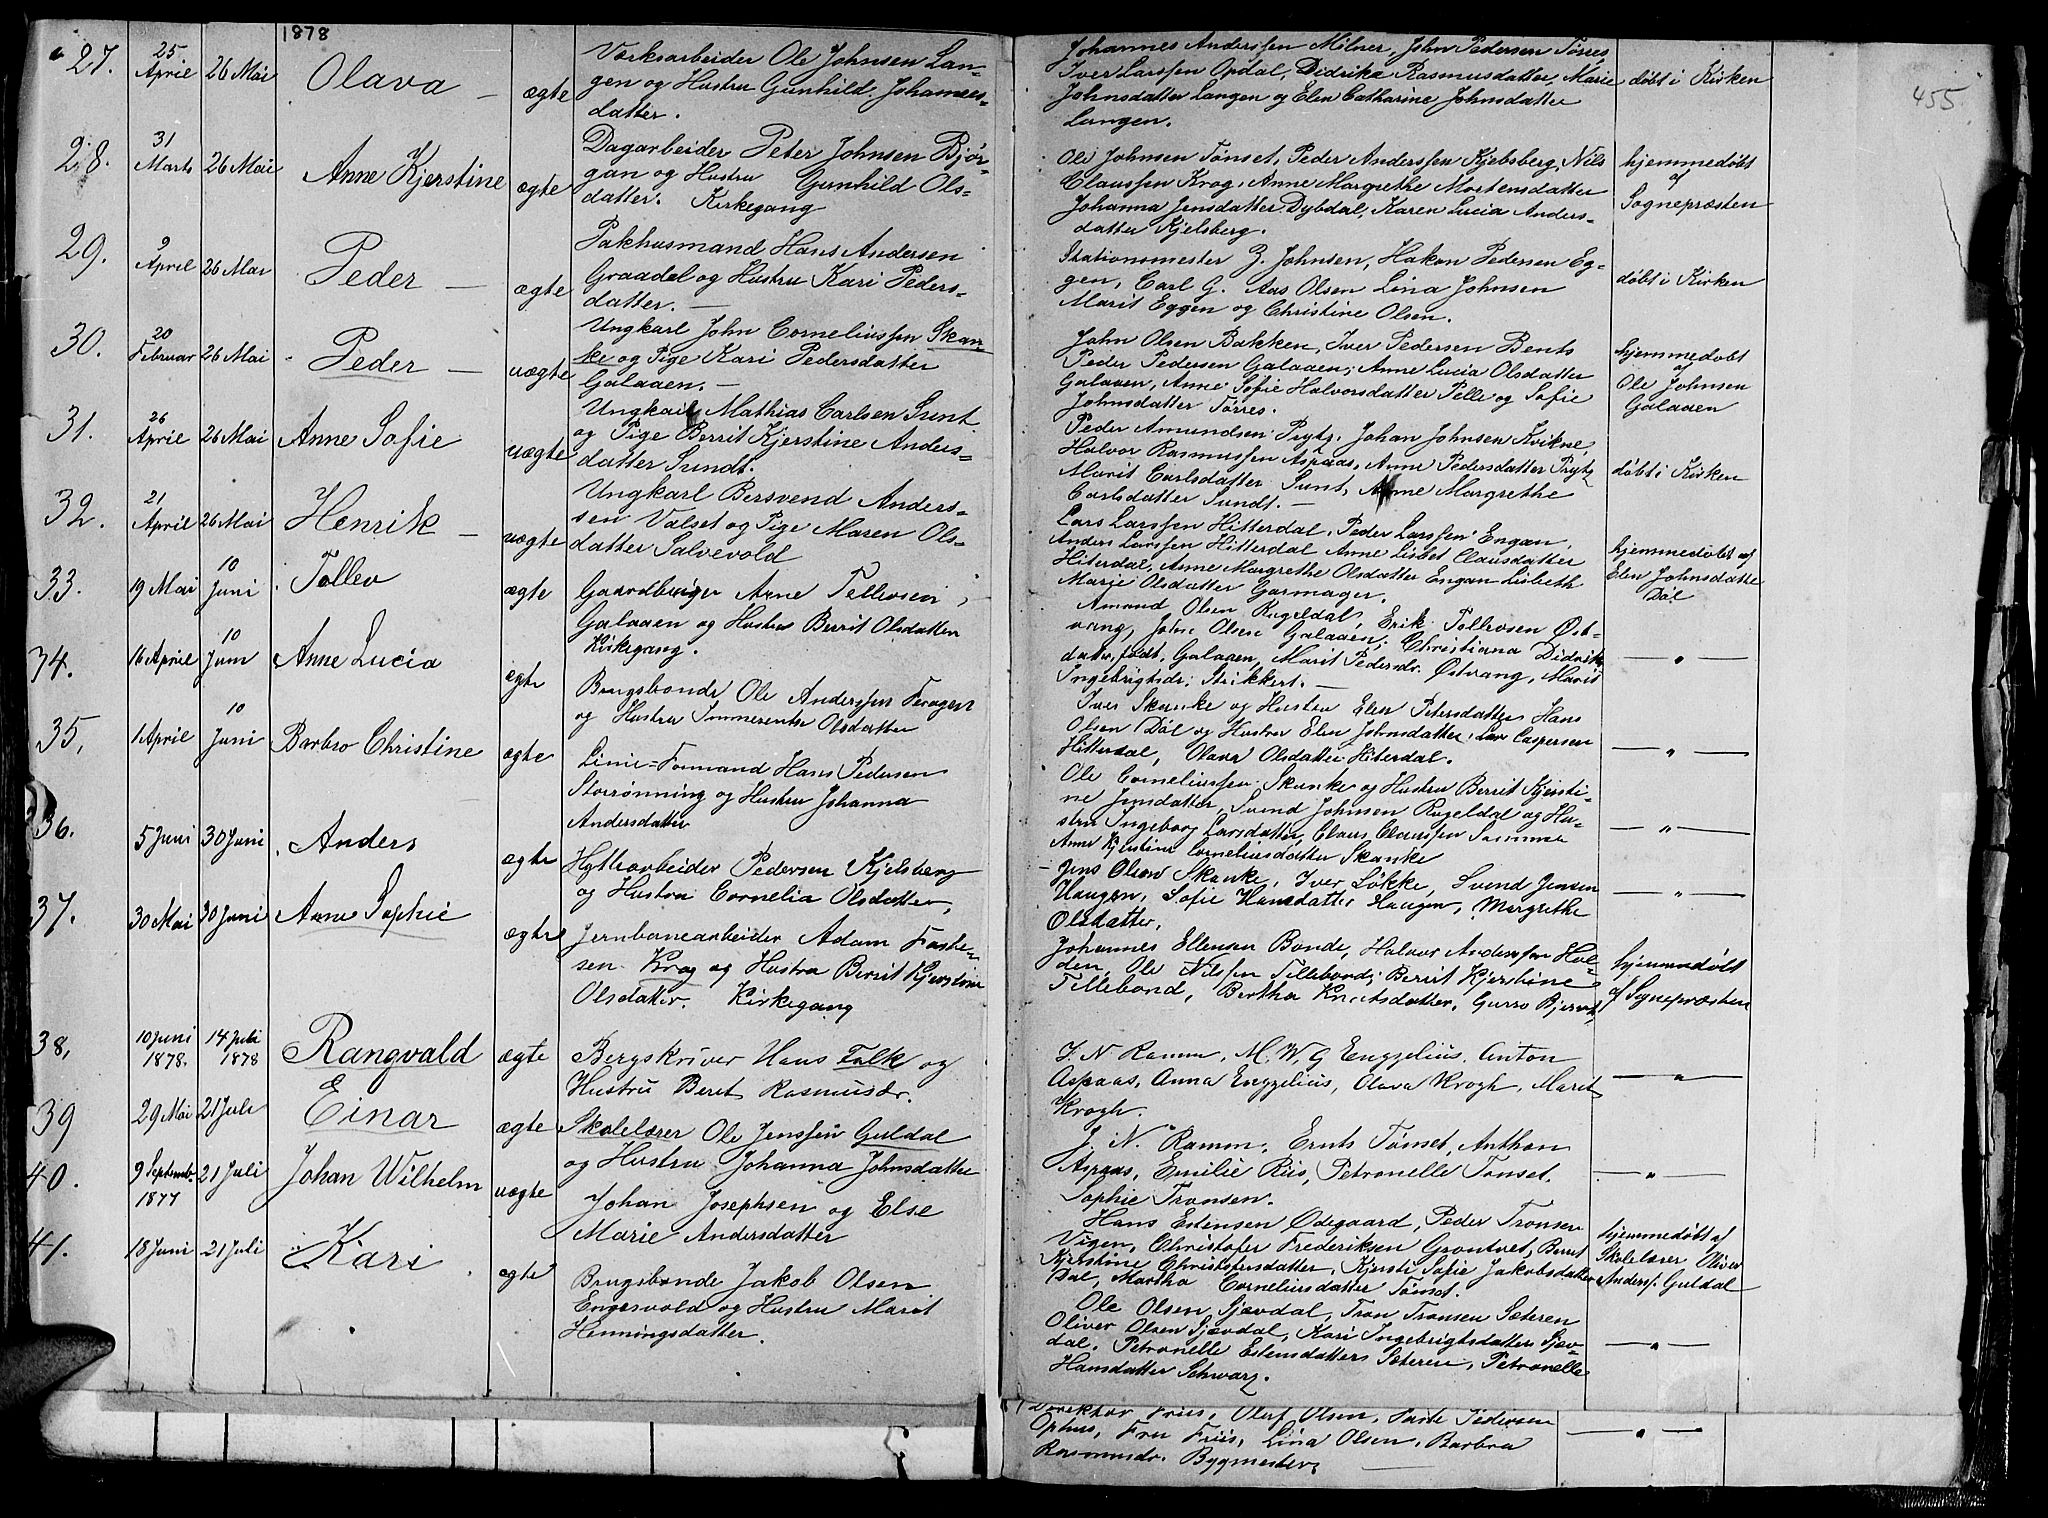 1878
455
27.
25
April
26 Mai
Olava
ægte
Værksarbeider Ole Johnsen Lan-
gen og Hustru Gunhild Johannes-
datter.
Johannes Anderssen Milner, John Pedersen Tørres,
Iver Larssen Opdal, Didrika Rasmusdatter, Marie
Johnsdatter Langen og Elen Catharine Johnsdatter
Langen.
døbt i Kirken
28.
31
Marts
26 Mai
Anne Kjerstine
ægte
Dagarbeider Peter Johnsen Bjør-
gan og Hustru Gunhild Ols-
datter. Kirkegang
Ole Johnsen Tønset, Peder Anderssen Kjelsberg, Nils
Claussen Krog, Anne Margrethe Mortensdatter
Johanna Jensdatter Dybdal, Karen Lucia Anders-
datter Kjelsberg.
hjemmedøbt
af
Sognepræsten
29.
9
April
26 Mai
Peder
ægte
Pakhusmand Hans Andersen
Graadal og Hustru Kari Peders-
datter.
Stationsmester J. Johnsen, Hakon Pedersen Eg-
gen, Carl G. Aas Olsen Lina Johnsen
Marit Eggen og Christine Olsen.
døbt i Kirken
30.
20
Februar
26 Mai
Peder
uægte
Ungkarl John Corneliussen Skan-
ke og Pige Kari Pedersdatter
Galaaen.
John Olsen Bakken, Iver Pedersen Bents
Peder Pedersen Galaaen, Anne Lucia Olsdatter
Galaaen, Anne Sofie Halvorsdatter Pelle og Sofie
Johnsdatter Tørres.
hjemmedøbt
af
Ole Johnsen
Galaaen
31.
26
April
26 Mai
Anne Sofie
uægte
Ungkarl Mathias Carlsen Sunt
og Pige Berrit Kjerstine Anders-
datter Sundt.
Peder Amundsen Prytz, Johan Johnsen Kvikne,
Halvor Rasmussen Aspaas, Anne Pedersdatter Prytz
Marit Carlsdatter Sunt, Anne Margrethe
Carlsdatter Sundt.
døbt i Kirken
32.
21
April
26 Mai
Henrik
uægte
Ungkarl Bersvend Anders-
sen Valset og Pige Maren Ols-
datter Salvevold
Lars Larssen Hitterdal, Peder Larssen Engan,
Anders Larssen Hitterdal Anne Lisbet Clausdatter
Hiterdal, Anne Margrethe Olsdatter Engan Lisbeth
Marie Olsdatter Garmager.
hjemmedøbt af
Elen Johnsdatter
Døl
33.
19 Mai
10
Juni
Tollev
ægte
Gaardbruger Arne Tollevsen
Galaaen og Hustru Berrit Olsdatter
Kirkegang.
Amund Olsen Rugeldal, Erik Tollevsen Øst-
vang, John Olsen Galaaen, Christiana Didriks
datter, født Galaaen, Marit Pedersdr. Østvang, Marit
Ingebrigtsdr. Strikkert.
— " —
34.
16 April
10
Juni
Anne Lucia
ægte
Brugsbonde Ole Anderssen Feragen
og Hustru Immerentse Olsdatter
Iver Skanke og Hustru Elen Petersdatter, Hans
Olsen Døl og Hustru Elen Johnsdatter, Lars Caspersen
Hitterdal, Olava Olsdatter Hiterdal.
— " —
35.
1 April
10
Juni
Barbro Christine
ægte
Linie-Formand Hans Pedersen
Storrønning og Hustru Johanna
Andersdatter
Ole Corneliussen Skanke og Hustru Berrit Kjersti-
ne Jensdatter, Svend Johnsen Rugeldal og Hu-
stru Ingeborg Larsdatter, Claus Claussen Samme
Anne Kjerstine Corneliusdatter Skanke
— " —
36.
5 Juni
30 Juni
Anders
ægte
Hyttearbeider Pedersen Kjelsberg
og Hustru Cornelia Olsdatter,
Jens Olsen Skanke, Iver Løkke, Svend Jensen
Haugen, Sofie Hansdatter Haugen, Margrethe
Olsdatter.
— " —
37.
30 Mai
30 Juni
Anne Sophie
ægte
Jernbanearbeider Adam Faste-
sen Krog og Hustru Berrit Kjerstine
Olsdatter. Kirkegang
Johannes Ellensen Bonde, Halvor Anderssen Hol-
den, Ole Nilssen Tillebond, Berrit Kjerstine
Tillebond, Bertha Knutsdatter, Gurro
hjemmedøbt
af Sognepræsten
38.
10 Juni
1878.
14 Juli
1878
Rangvald
ægte
Bergskriver Hans Falk og
Hustru Beret Rasmusdr.
J. N Ramm, M. W. G Engzelius, Anton
Aspaas, Anna Engzelius, Olava Krogh, Maret
Krogh.
— " —
39
29 Mai
21 Juli
Einar
ægte
Skolelærer Ole Jenssen Guldal
og Hustru Johanna Johnsdatter
J. N. Ramm, Ernts Tønset, Anthon
Aspaas, Emilie Riis, Petronelle Tønset,
Sophie Tronsen.
— " —
40.
9 Septemb.
1877
21 Juli
Johan Wilhelm
uægte
Johan Josephsen og Else
Marie Andersdatter
Hans Estensen Ødegaard, Peder Tronsen
Vigen, Christofer Frederiksen Grøntvet, Berit
Kjerstine Christofersdatter, Kjersti Sofie Jakobsdatter
Dal, Martha Corneliusdatter Tønset.
hjemmedøbt af
Skolelærer Oliver
Anderss. Guldal
41.
18 Juni
21 Juli
Kari
ægte
Brugsbonde Jakob Olsen
Engesvold og Hustru Marit
Henningsdatter.
Ole Olsen Sjøvdal, Tron Tronsen Sæteren
Oliver Olsen Sjøvdal, Kari Ingebrigtsdatter Sjøv-
dal, Petronelle Estensdatter Sæteren, Petronelle
Hansdatter Schwarz.
— " —
Direktør Friis, Oluf Olsen, Pedersen
Ophus, Fru Friis, Lina Olsen, Barbra
Rasmusdr. Bygmester
— " —